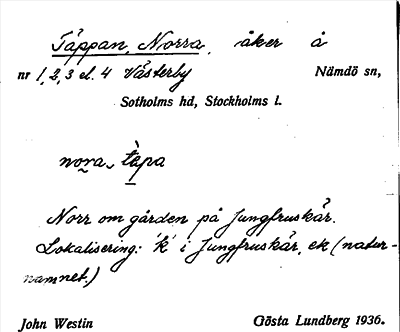 Täppan, Norra, åker å
nr 1, 2, 3 el. 4 Västerby Nämdö sn,
Sotholms hd, Stockholms l.
nora tàpa
Norr om gården på Jungfruskär.
Lokalisering: 'k' i Jungfruskär, ek (natur-
namnet.)
John Westin Gösta Lundberg 1936.